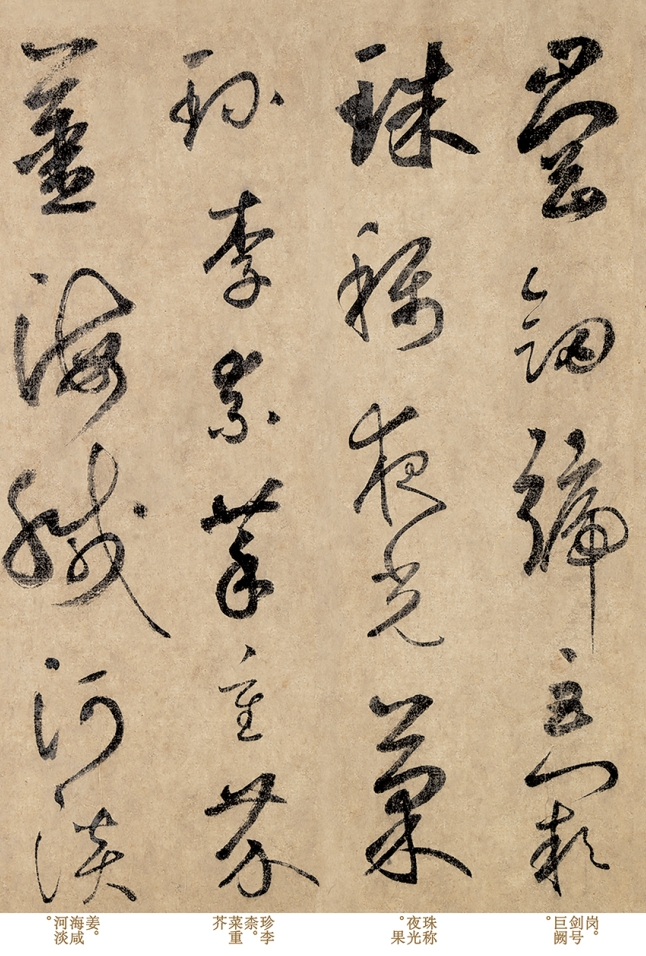 崗劒號巨闕
珠稱夜光菓
珍李柰菜重芥
薑海鹹河淡
岗。
剑号
巨阙。
珠称
夜光。
果
珍李
柰。
菜重
芥
姜。
海咸
河淡。